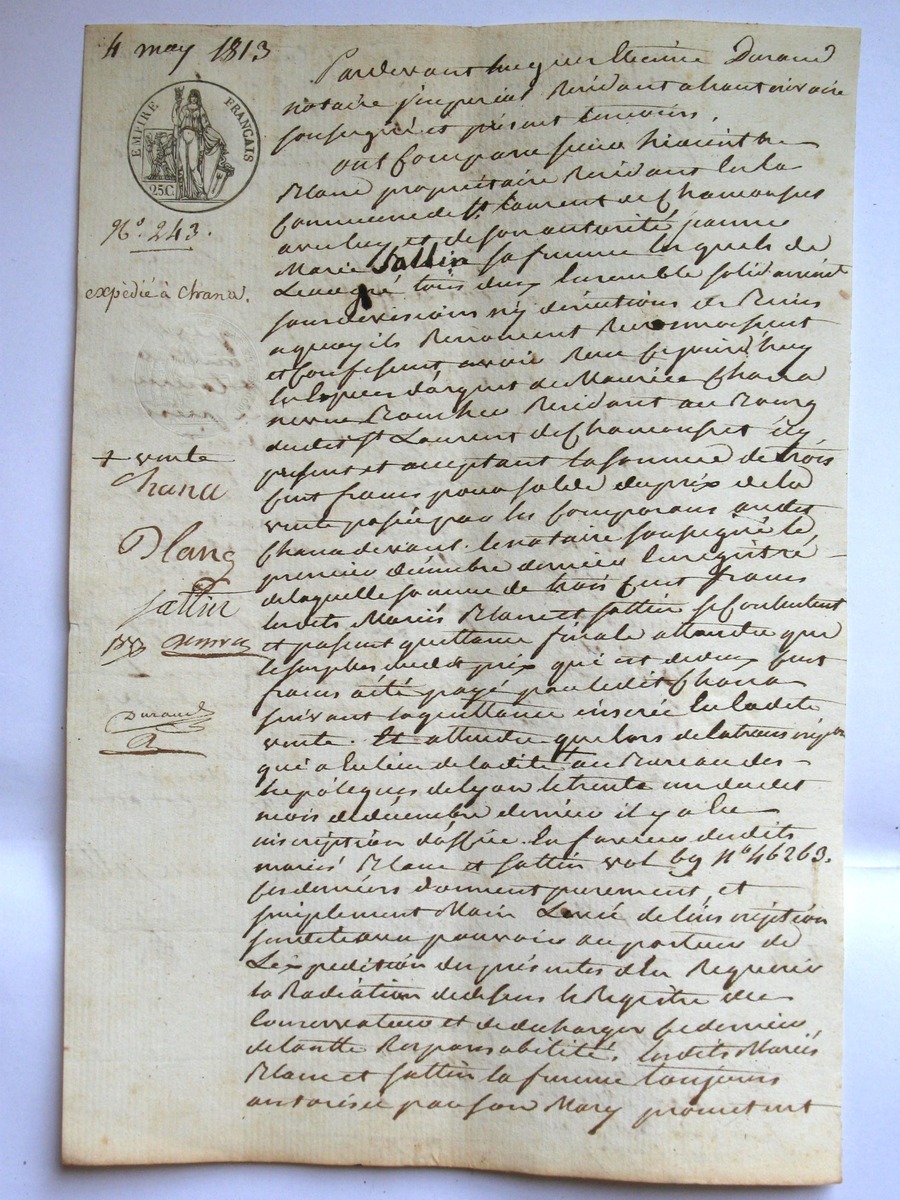 4 may 1813
EMPIRE FRANÇAIS
25 C.
N.º 243.
expédié à Chana.
+ vente
Chana
Blanc
sallin
Durand
Pardevant Durand
notaire imperial Residant a hautrivoire
soussigné et présent temoins,
ont Comparu
Blanc propriétaire Residant en la
Commune de St Laurent de Chamousset
avec luy et de son autorité jeanne
Marie Sallin sa femme lesquels de
Leur gré tous deux Ensemble solidairement
sans division ny
aquoy ils Renoncent Reconnoissent
et Confessent avoir Reçu Cejourdhuy
En Especes d'argent de Maurice Chana
Residant au Bourg
dudit St Laurent de Chamousset icy
présent et acceptant la somme de trois
Cent francs pour solde du prix de la
vente passée par les Comparans audit
Chana devant le notaire soussigné le
premier décembre dernier Enregistré
de laquelle somme de trois Cent francs
lesdits Mariés Blanc et Sallin se Contentent
et passent quittance finale attendu que
le surplus dudit prix qui est de deux Cent
francs a été payé par ledit Chana
suivant la quittance inserée En ladite
vente. Et attendu que lors de la transcription
qui a Eu lieu de ladite au Bureau des
hypotéques de Lyon le trente un dudit
mois de décembre dernier il y a Eu
inscription d'office En faveur desdits
mariés Blanc et Sallin vol 69 nº 46263.
Ces derniers donnent purement et
simplement Main Levée de l'inscription
pouvoir au porteur de
L'expedition des présentes d'En Requerir
la Radiation de dessus le Registre du
Conservateur et de decharger ce dernier
de toutte Responsabilité. Lesdits Mariés
Blanc et Sallin la femme toujours
autorisée par son Mary promettent